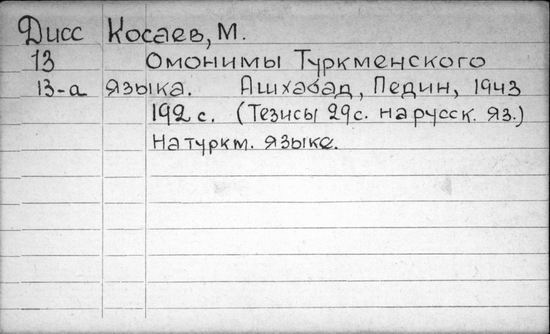 Дисс Косаев, М.
13 Омонимы Туркменского
13-а языка. Ашхабад, Педин, 1943
192 с. (Тезисы 29с. на русск. яз.)
На туркм. языке.